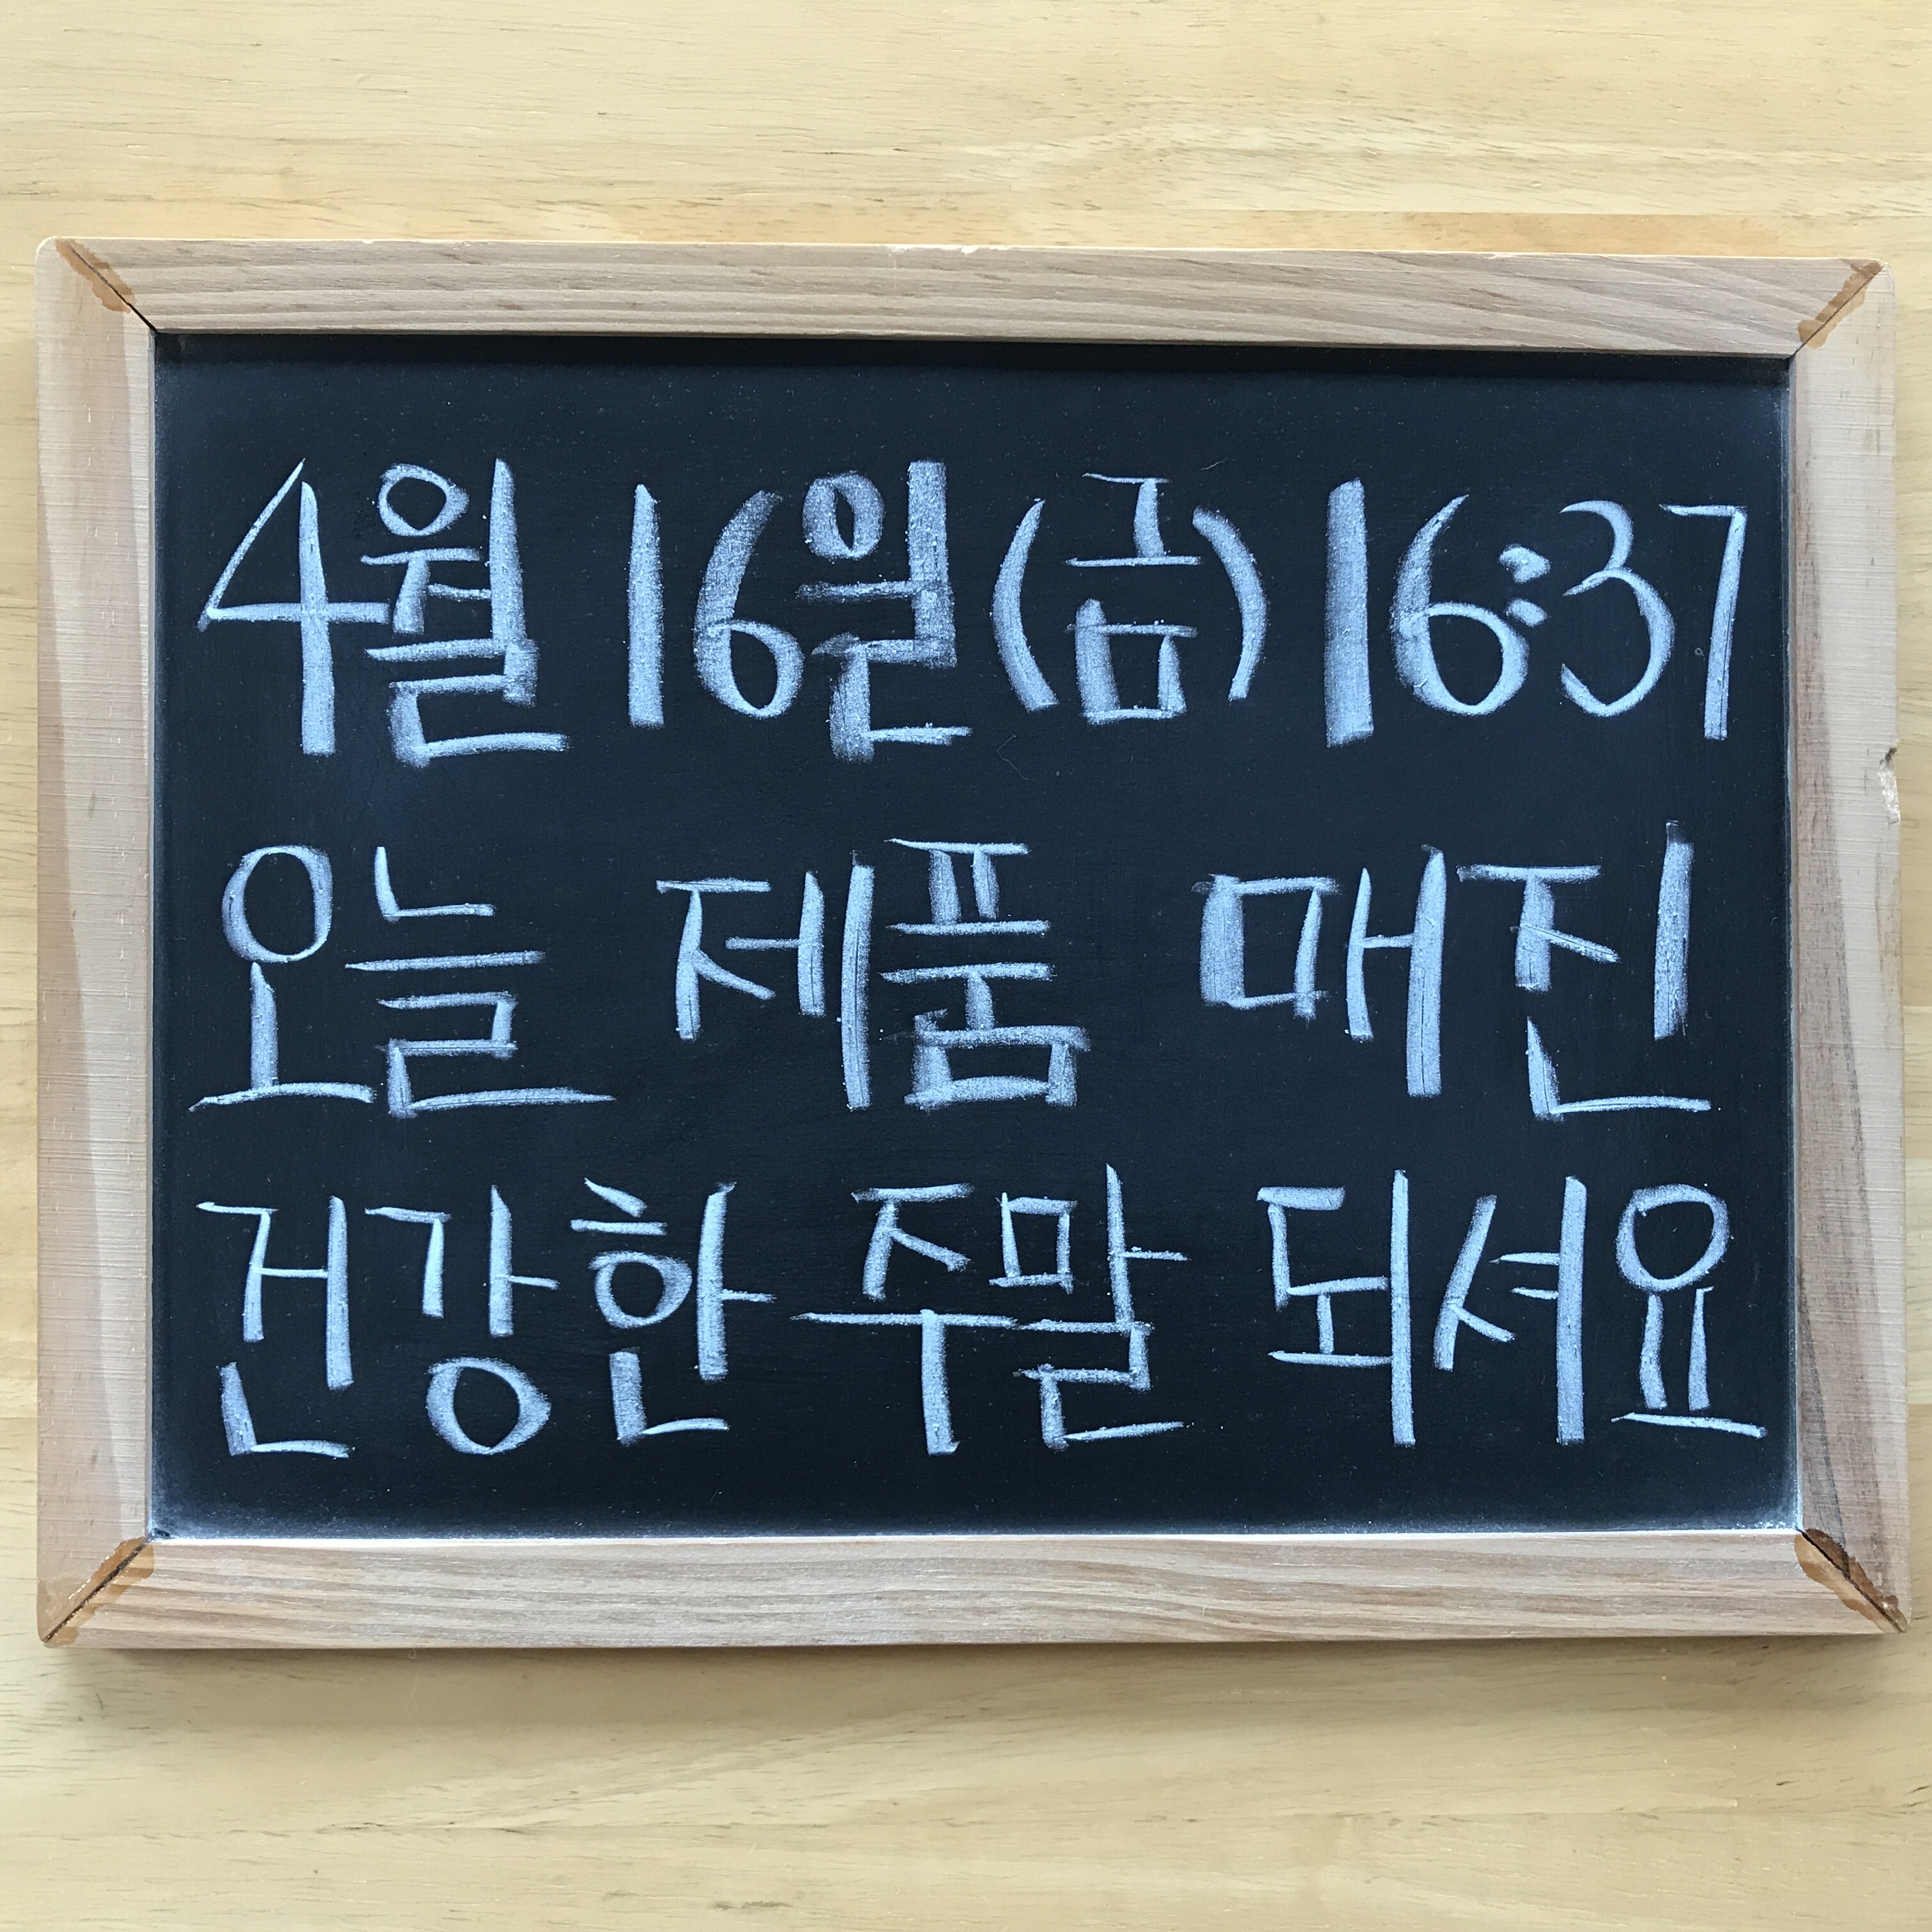 4월 16일(금) 16:37
오늘 제품 매진
건강한 주말 되셔요